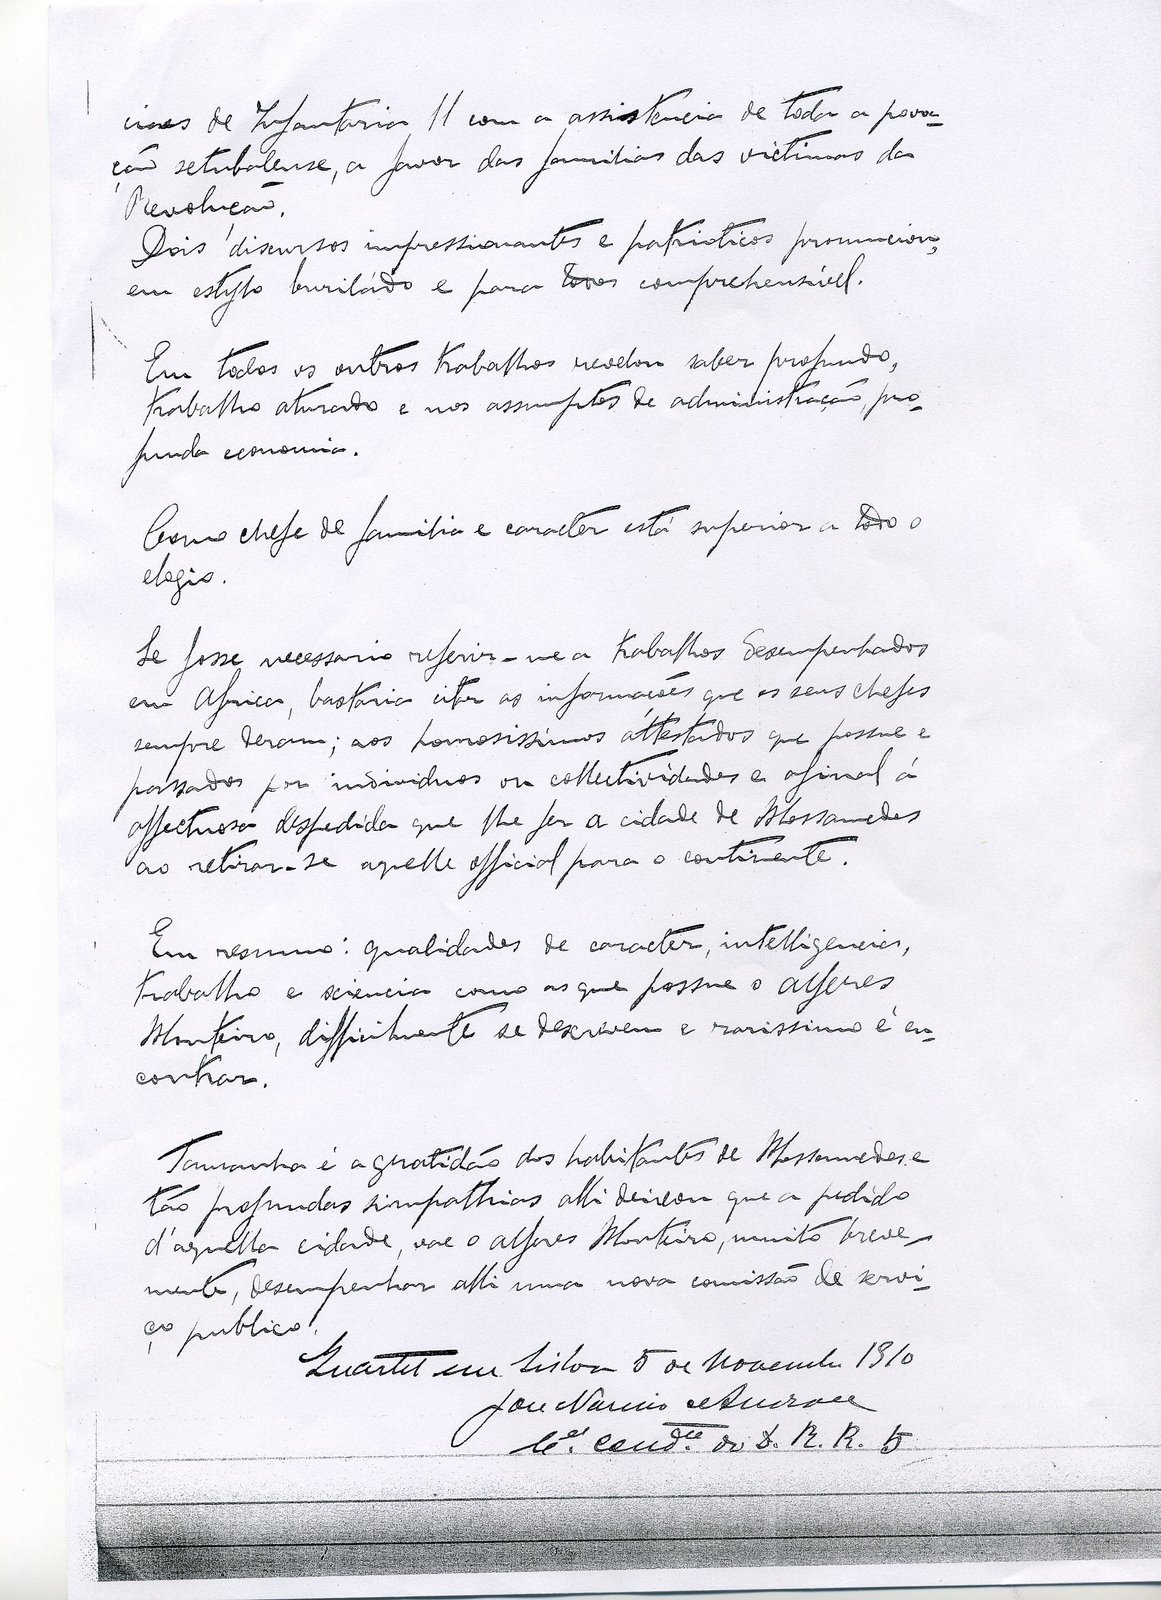 ciaes de Infantaria 11 com a assistencia de toda a povoa-
ção setubalense, a favor das familias das victimas da
Revolução.
Dois discursos impressionantes e patrioticos pronunciou,
em estylo burilado e para todos comprehensivel.
Em todos os outros trabalhos revelou saber profundo,
trabalho aturado e nos assumptos de administração, pro-
funda economia.
Como chefe de familia e caracter está superior a todo o
elogio.
Se fosse necessario referir-me a trabalhos desempenhados
em Africa, bastaria citar as informações que os seus chefes
sempre deram; aos honrosissimos attestados que possue e
passados por individuos ou collectividades e afinal á
affectuosa despedida que lhe fez a cidade de Mossamedes
ao retirar-se aquelle official para o continente.
Em resumo: qualidades de caracter, intelligencia,
trabalho e sciencia como as que possue o alferes
Monteiro, difficilmente se descrevem e rarissimo é en-
contrar.
Tamanha é a gratidão dos habitantes de Mossamedes e
tão profundas simpathias alli deixou que a pedido
d'aquella cidade, vae o alferes Monteiro, muito breve-
mente, desempenhar alli uma nova comissão de servi-
ço publico.
Quartel em Lisboa 5 de Novembro 1910
José Narciso de Andrade
Cel. Comdte. do D. R. R. 5